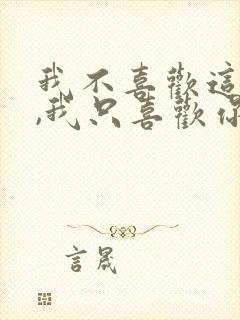 我不喜歡這
,我只喜歡你
言晟